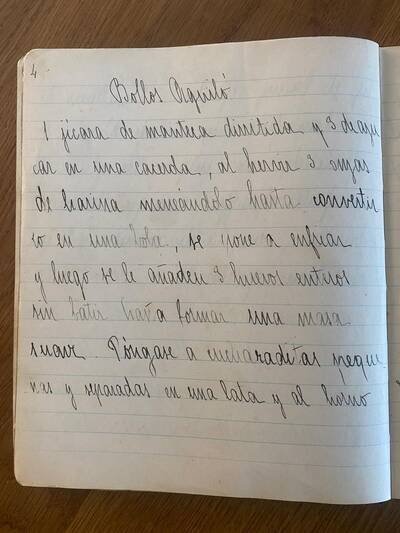 4
Bollos Aguiló
1 jícara de manteca dirretida y 3 de azu
car en una cacerola, al hervir 3 onzas
de harina meneandolo hasta convertir
lo en una bola, se pone a enfriar
y luego se le añaden 3 huevos enteros
sin batir hasta formar una masa
suave. Póngase a cucharaditas peque
ñas y separadas en una lata y al horno